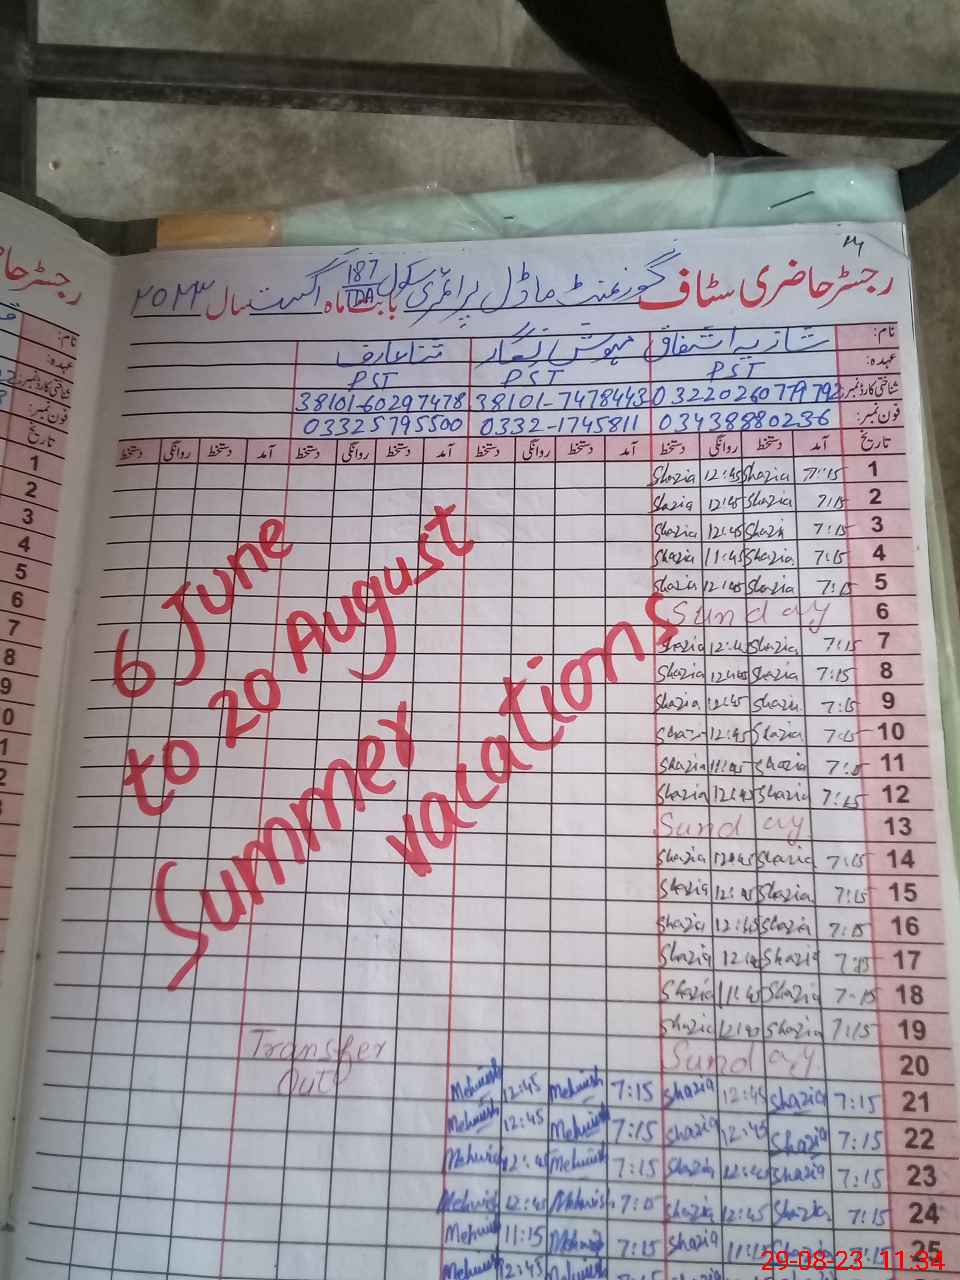 رجسٹر حاضری سٹاف گورنمنٹ ماڈل پرائمری سکول 187/TDA بابت ماہ اگست سال ۲۰۲۳
نام: شازیہ اشفاق مہوش نگار ثنا عارف
عہدہ: PST PST PST
شناختی کارڈ نمبر: 38101-7478443 38101-60297478
فون نمبر: 03438880236 0332-1745811 03325795500
تاریخ آمد دستخط روانگی دستخط آمد دستخط روانگی دستخط آمد دستخط روانگی دستخط آمد دستخط روانگی دستخط
1 7:15 Shazia 12:45 Shazia
2 7:15 Shazia 12:45 Shazia
3 7:15 Shazia 12:45 Shazia
4 7:15 Shazia 11:45 Shazia
5 7:15 Shazia 12:45 Shazia
6 Sunday
7 7:15 Shazia 12:45 Shazia
8 7:15 Shazia 12:45 Shazia
9 7:15 Shazia 12:45 Shazia
10 7:15 Shazia 12:45 Shazia
11 7:15 Shazia 11:45 Shazia
12 7:15 Shazia 12:45 Shazia
13 Sunday
14 7:15 Shazia 12:45 Shazia
15 7:15 Shazia 12:45 Shazia
16 7:15 Shazia 12:45 Shazia
17 7:15 Shazia 12:45 Shazia
18 7-15 Shazia 11:45 Shazia
19 7:15 Shazia 12:45 Shazia
20 Sunday
21 7:15 Shazia 12:45 Shazia 7:15 Mehwish 12:45 Mehwish
22 7:15 Shazia 12:45 Shazia 7:15 Mehwish 12:45 Mehwish
23 7:15 Shazia 12:45 Shazia 7:15 Mehwish 12:45 Mehwish
24 7:15 Shazia 12:45 Shazia 7:15 Mehwish 12:45 Mehwish
25 7:15 Shazia 11:15 Shazia 7:15 Mehwish 11:15 Mehwish
7:15 12:45 Mehwish
6 June
to 20 August
Summer
vacations
Transfer
Out
29-08-23 11:34